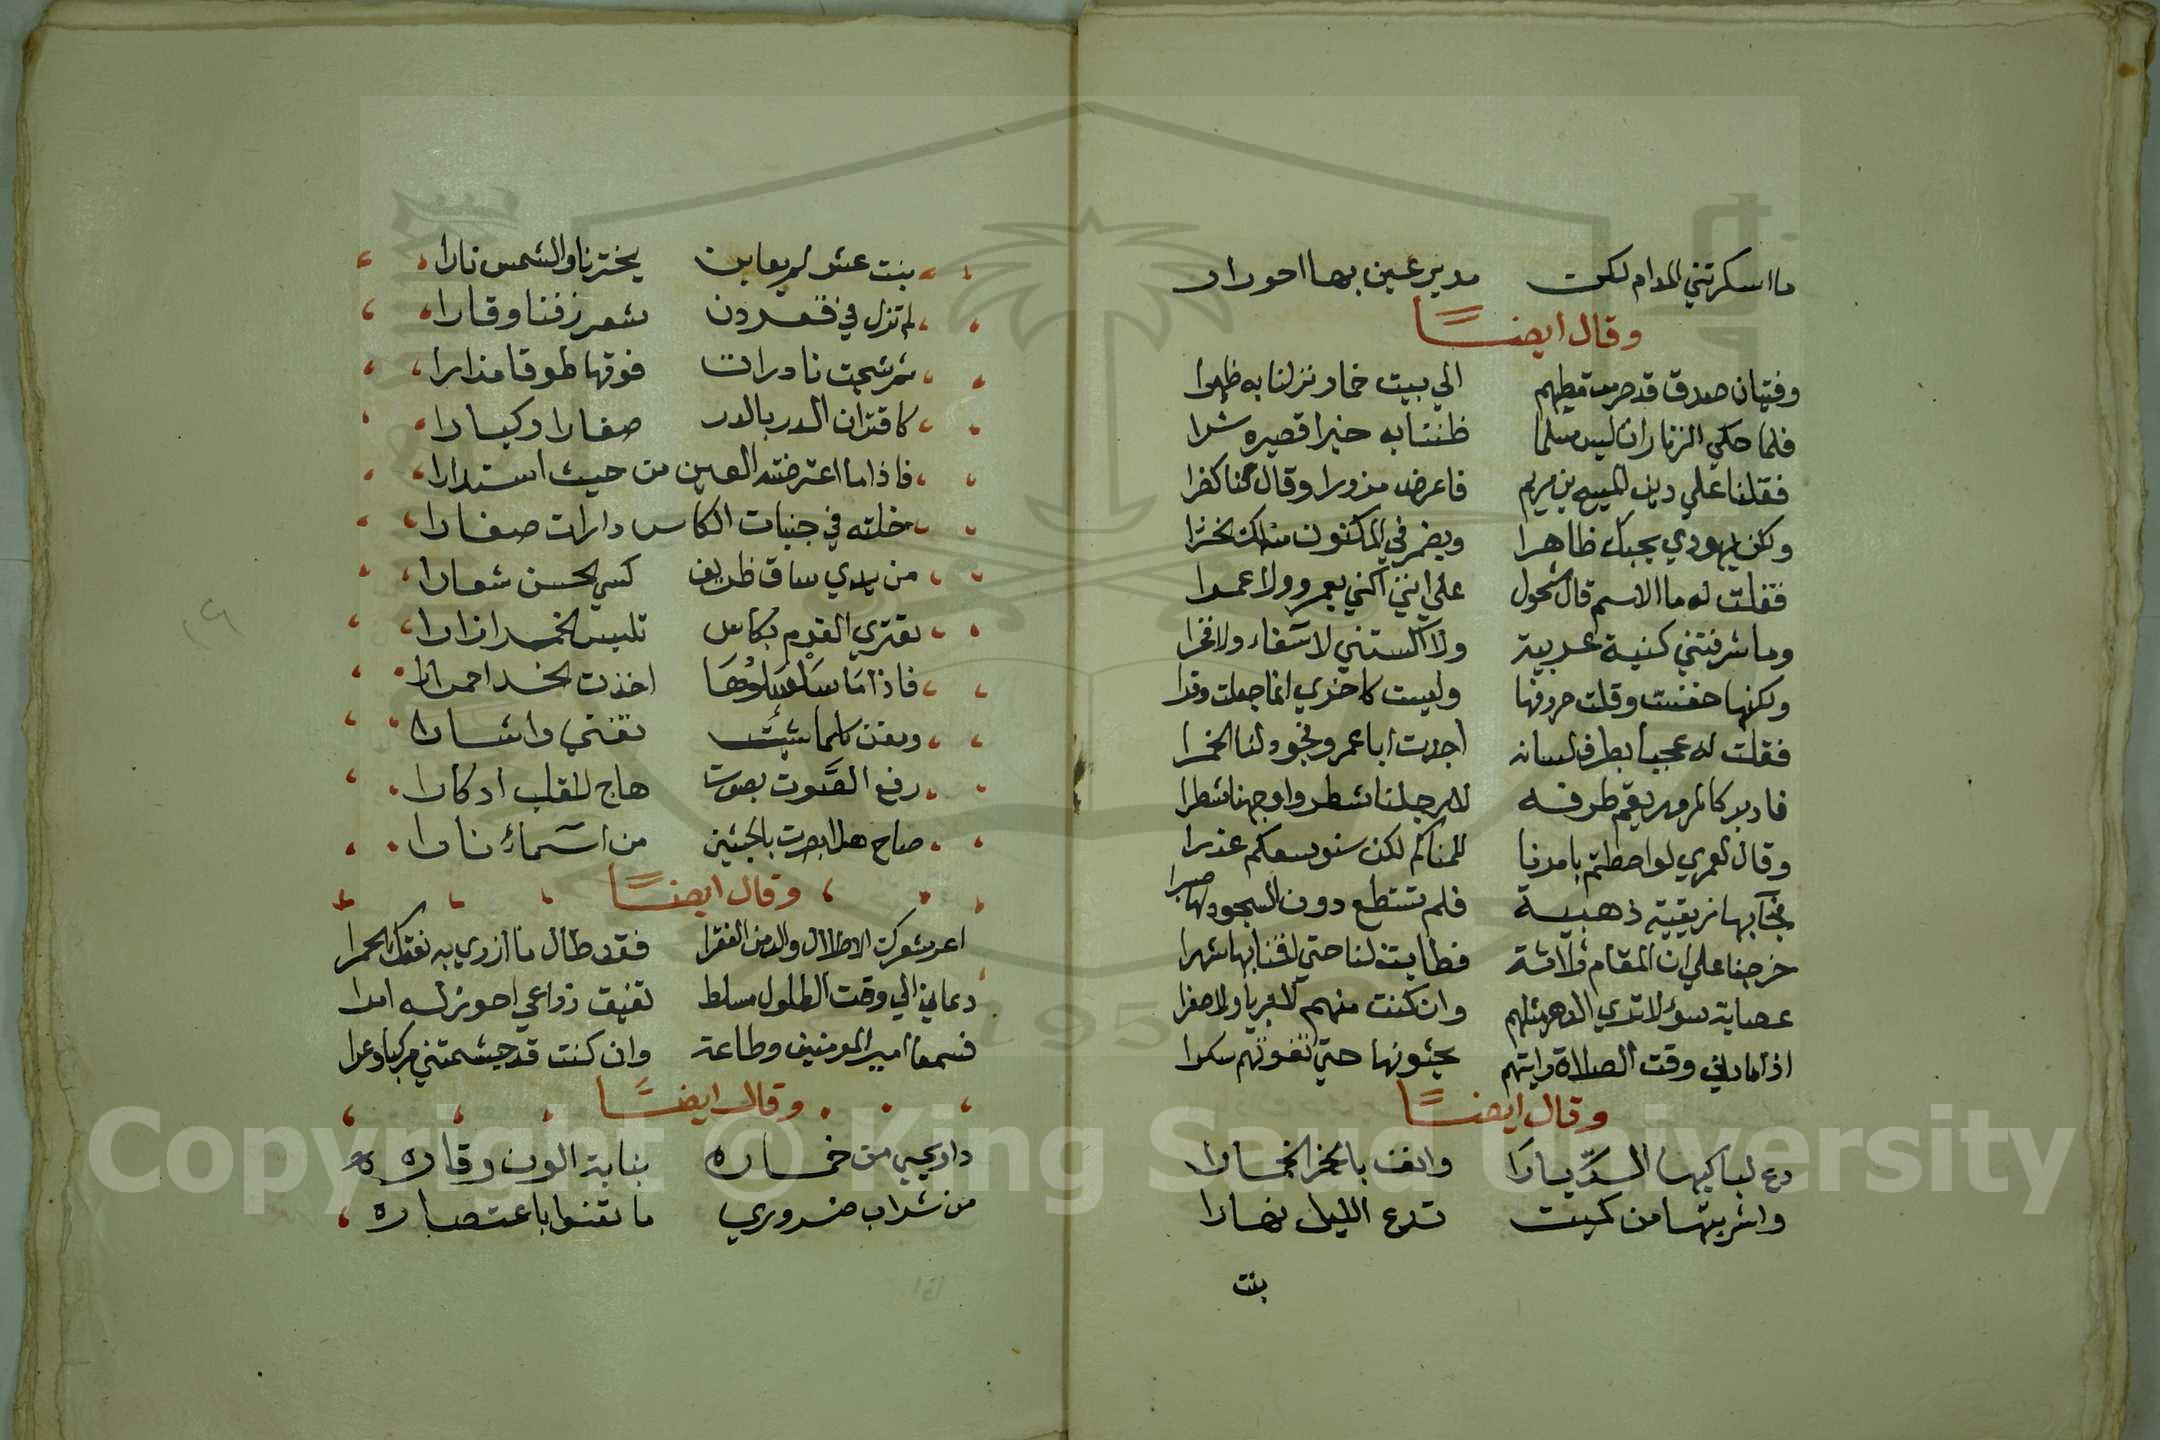 ما اسكرتني المدام لكن مدير عين بها احورار
وقال ايضا
وفتيان صدق قد صرفت مطيهم الي بيت خمار نزلنا به ظهرا
فلما حكي الزنار ان ليس مسلما ظننا به خيرا فصيره شرا
فقلنا علي دين المسيح بن مريم فاعرض مزورا وقال لنا كفرا
ولكن يهودي يحبك ظاهرا ويضمر في المكنون منه لك الخترا
فقلت له ما الاسم قال سمول علي انني اكني بعمرو ولا عمرا
وما شرفتني كنية عربية ولا اكسبتني لا سناء ولا فخرا
ولكنها خفت وقلت حروفها وليست كاخري انما جعلت وقرا
فقلت له عجبا بظرف لسانه اجدت ابا عمرو فجود لنا الخمرا
فادبر كالمزور يقسم طرفه لارجلنا شطر واوجهنا شطرا
وقال لعمري لو احطتم بامرنا للمناكم لكن سنوسعكم عذرا
فجآ بها زيتية ذهبية فلم تستطع دون السجود لها صبرا
خرجنا علي ان المقام ثلاثة فطابت لنا حتي اقمنا بها شهرا
عصابة سوء لا تري الدهر مثلهم وان كنت منهم لا بريا ولا صفرا
اذا ما دني وقت الصلاة رايتهم يحثونها حتي تفوتهم سكرا
وقال ايضا
دع لباكيها الديارا وانف بالخمر الخمارا
واشربنها من كميت تدع الليل نهارا
بنت
بنت عشر لم يعاين يخترنا والشمس نارا
لم تزل في قعر دن مشعر زفتا وقارا
ثم شجت نادرات فوقها طوقا مدارا
كاقتران الدر بالدر صغارا وكبارا
فاذا ما اعترضته العين من حيث استدارا
خلته في جنبات الكاس دارات صغارا
من يدي ساق ظريف كسي الحسن شعارا
يقتري القوم بكاس تلبس الخمر ازارا
فاذا ما سلسلوها اخذت الخد احمرارا
ويغن كلما شئت تغني واشارا
رفع الصوت بصوت هاج للقلب ادكارا
صاح هل ابصرت بالخبتين من اسماء نارا
وقال ايضا
اعر شعرك الاطلال والدمن القفرا فقد طال ما ازري به نعتك الخمرا
دعاني الي وقت الطلول مسلط تضيق ذراعي احوز له امرا
فسمعا امير المومنين وطاعة وان كنت قد جشمتني مركبا وعرا
وقال ايضا
من خماره وقاره
من شراب باعتصاره
Copyright © King Saud University
1957